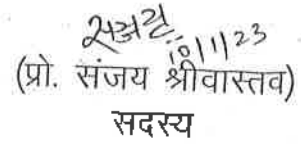 10/1/23
(प्रो. संजय श्रीवास्तव)
सदस्य